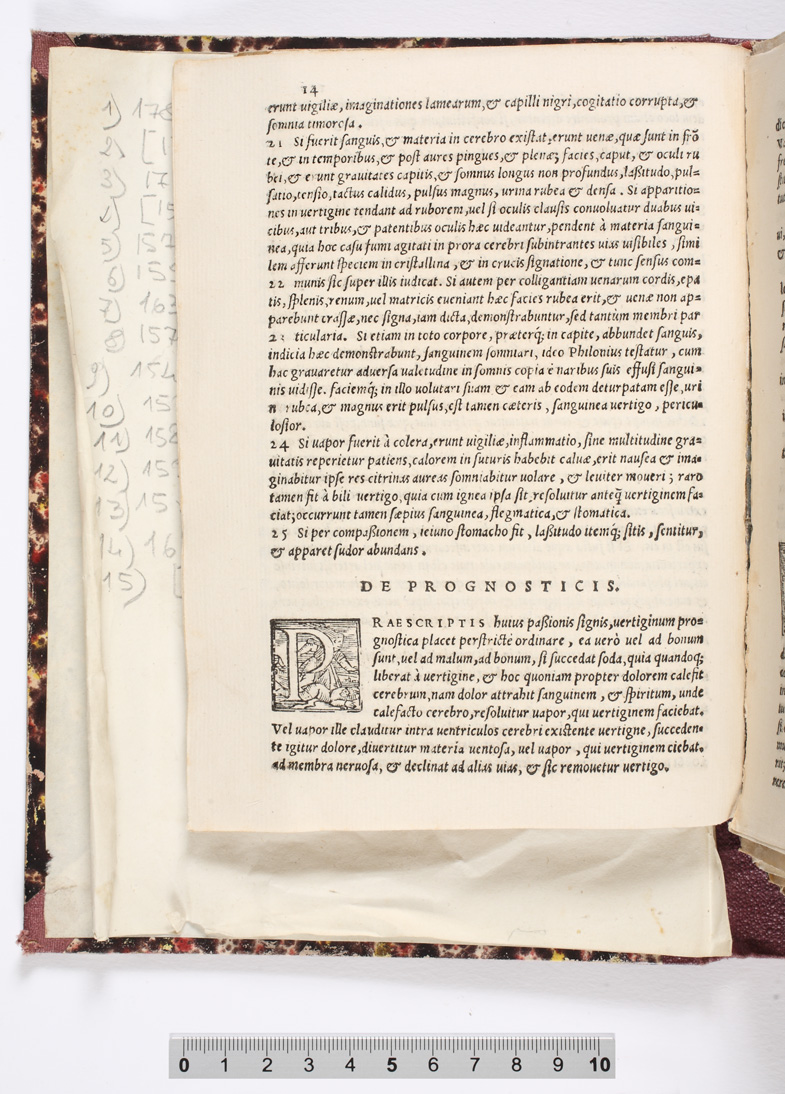 14
erunt uigiliæ, imaginationes lamearum, & capilli nigri, cogitatio corrupta, &
somnia timorosa.
21 Si fuerit sanguis, & materia in cerebro existat, erunt uenæ, quæ sunt in frõ
te, & in temporibus, & post aures pingues, & plenaꝫ facies, caput, & oculi ru
bei, & erunt grauitates capitis, & somnus longus non profundus, lassitudo, pul=
satio, tensio, tactus calidus, pulsus magnus, urina rubea & densa. Si apparitio=
nes in uertigine tendant ad ruborem, uel si oculis clausis conuoluatur duabus ui=
cibus, aut tribus, & patentibus oculis hæc uideantur, pendent à materia sangui=
nea, quia hoc casu fumi agitati in prora cerebri subintrantes uias uisibiles, simi
lem afferunt speciem in cristallina, & in crucis signatione, & tunc sensus com=
22 munis sic super illis iudicat. Si autem per colligantiam uenarum cordis, epa
tis, splenis, renum, uel matricis eueniant hæc facies rubea erit, & uenæ non ap=
parebunt crassæ, nec signa, iam dicta, demonstrabuntur, sed tantùm membri par
23 ticularia. Si etiam in toto corpore, præterq; in capite, abbundet sanguis,
indicia hæc demonstrabunt, sanguinem somniari, ideo Philonius testatur, cum
hac grauaretur aduersa ualetudine in somnis copia è naribus suis effusi sangui=
nis uidisse. faciemq; in illo uolutari suam & eam ab eodem deturpatam esse, uri
n rubea, & magnus erit pulsus, est tamen cæteris, sanguinea uertigo, pericu=
losior.
24 Si uapor fuerit à colera, erunt uigiliæ, inflammatio, sine multitudine gra=
uitatis reperietur patiens, calorem in suturis habebit caluæ, erit nausea & ima=
ginabitur ipse res citrinas aureas somniabitur uolare, & leuiter moueri; rarò
tamen fit à bili uertigo, quia cum ignea ipsa sit, resoluitur anteq̃ uertiginem fa=
ciat; occurrunt tamen sæpius sanguinea, flegmatica, & stomatica.
25 Si per compassionem, ieiuno stomacho fit, lassitudo itemq; sitis, sentitur,
& apparet sudor abundans.
DE PROGNOSTICIS.
PRAESCRIPTIS huius passionis signis, uertiginum pro=
gnostica placet perstrictè ordinare, ea uerò uel ad bonum
sunt, uel ad malum, ad bonum, si succedat soda, quia quandoq;
liberat à uertigine, & hoc quoniam propter dolorem calefit
cerebrum, nam dolor attrahit sanguinem, & spiritum, unde
calefacto cerebro, resoluitur uapor, qui uertiginem faciebat.
Vel uapor ille clauditur intra uentriculos cerebri existente uertigne, succeden=
te igitur dolore, diuertitur materia uentosa, uel uapor, qui uertiginem ciebat.
ad membra neruosa, & declinat ad alias uias, & sic remouetur uertigo.
1) 178
[1
17
[15
157
155
7) 163
8) 157
9) 154
10) 15
11) 158
12) 15
13) 15
14) 16
15) [
0 1 2 3 4 5 6 7 8 9 10